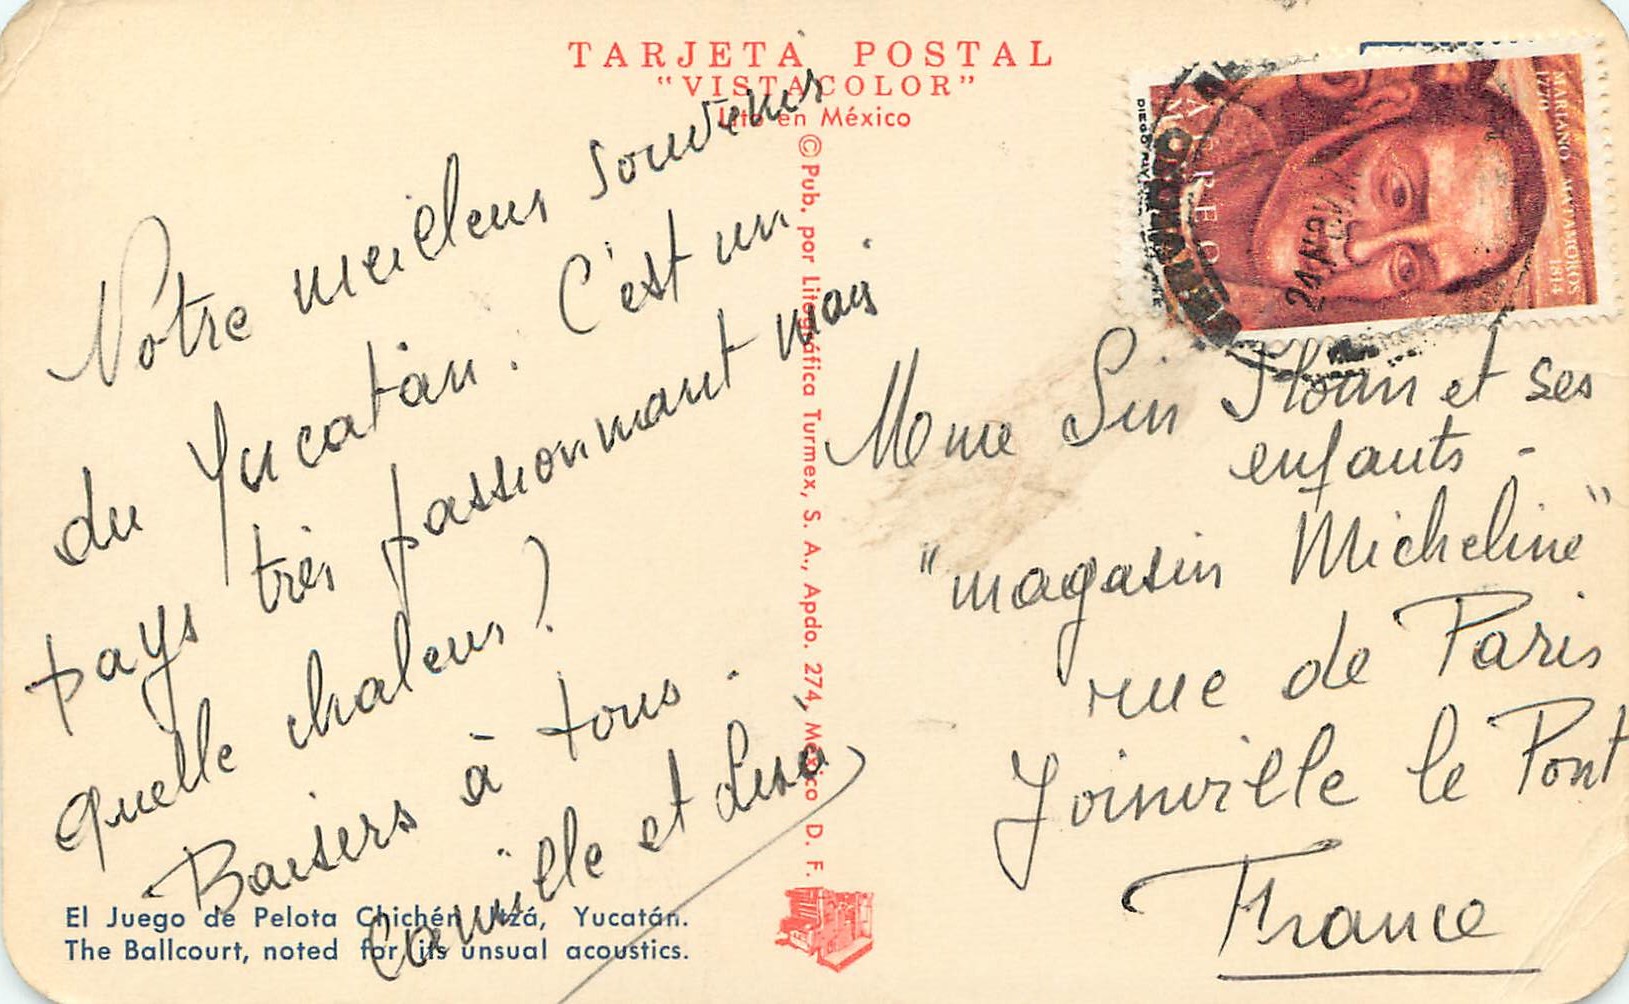 TARJETA POSTAL
"VISTACOLOR"
Lito en México
© Pub. por Litográfica Turmex, S. A., Apdo. 274, México D. F.
Notre meilleur souvenir
du Yucatán. C'est un
pays très passionnant mais
quelle chaleur?
Baisers à tous.
Camille et
El Juego de Pelota Chichén Itzá, Yucatán.
The Ballcourt, noted for its unsual acoustics.
MARIANO MATAMOROS
1770 1814
AEREO
24 NOV
Mme et ses
enfants -
"magasin Micheline"
rue de Paris
Joinville le Pont
France